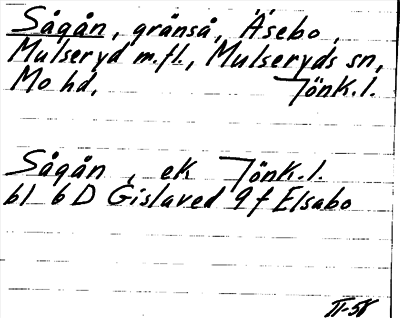 Sågån, gränså, Åsebo,
Mulseryd m.fl., Mulseryds sn,
Mo hd, Jönk.l.
Sågån, ek Jönk.l.
bl 6D Gislaved 9f Elsabo
II-58